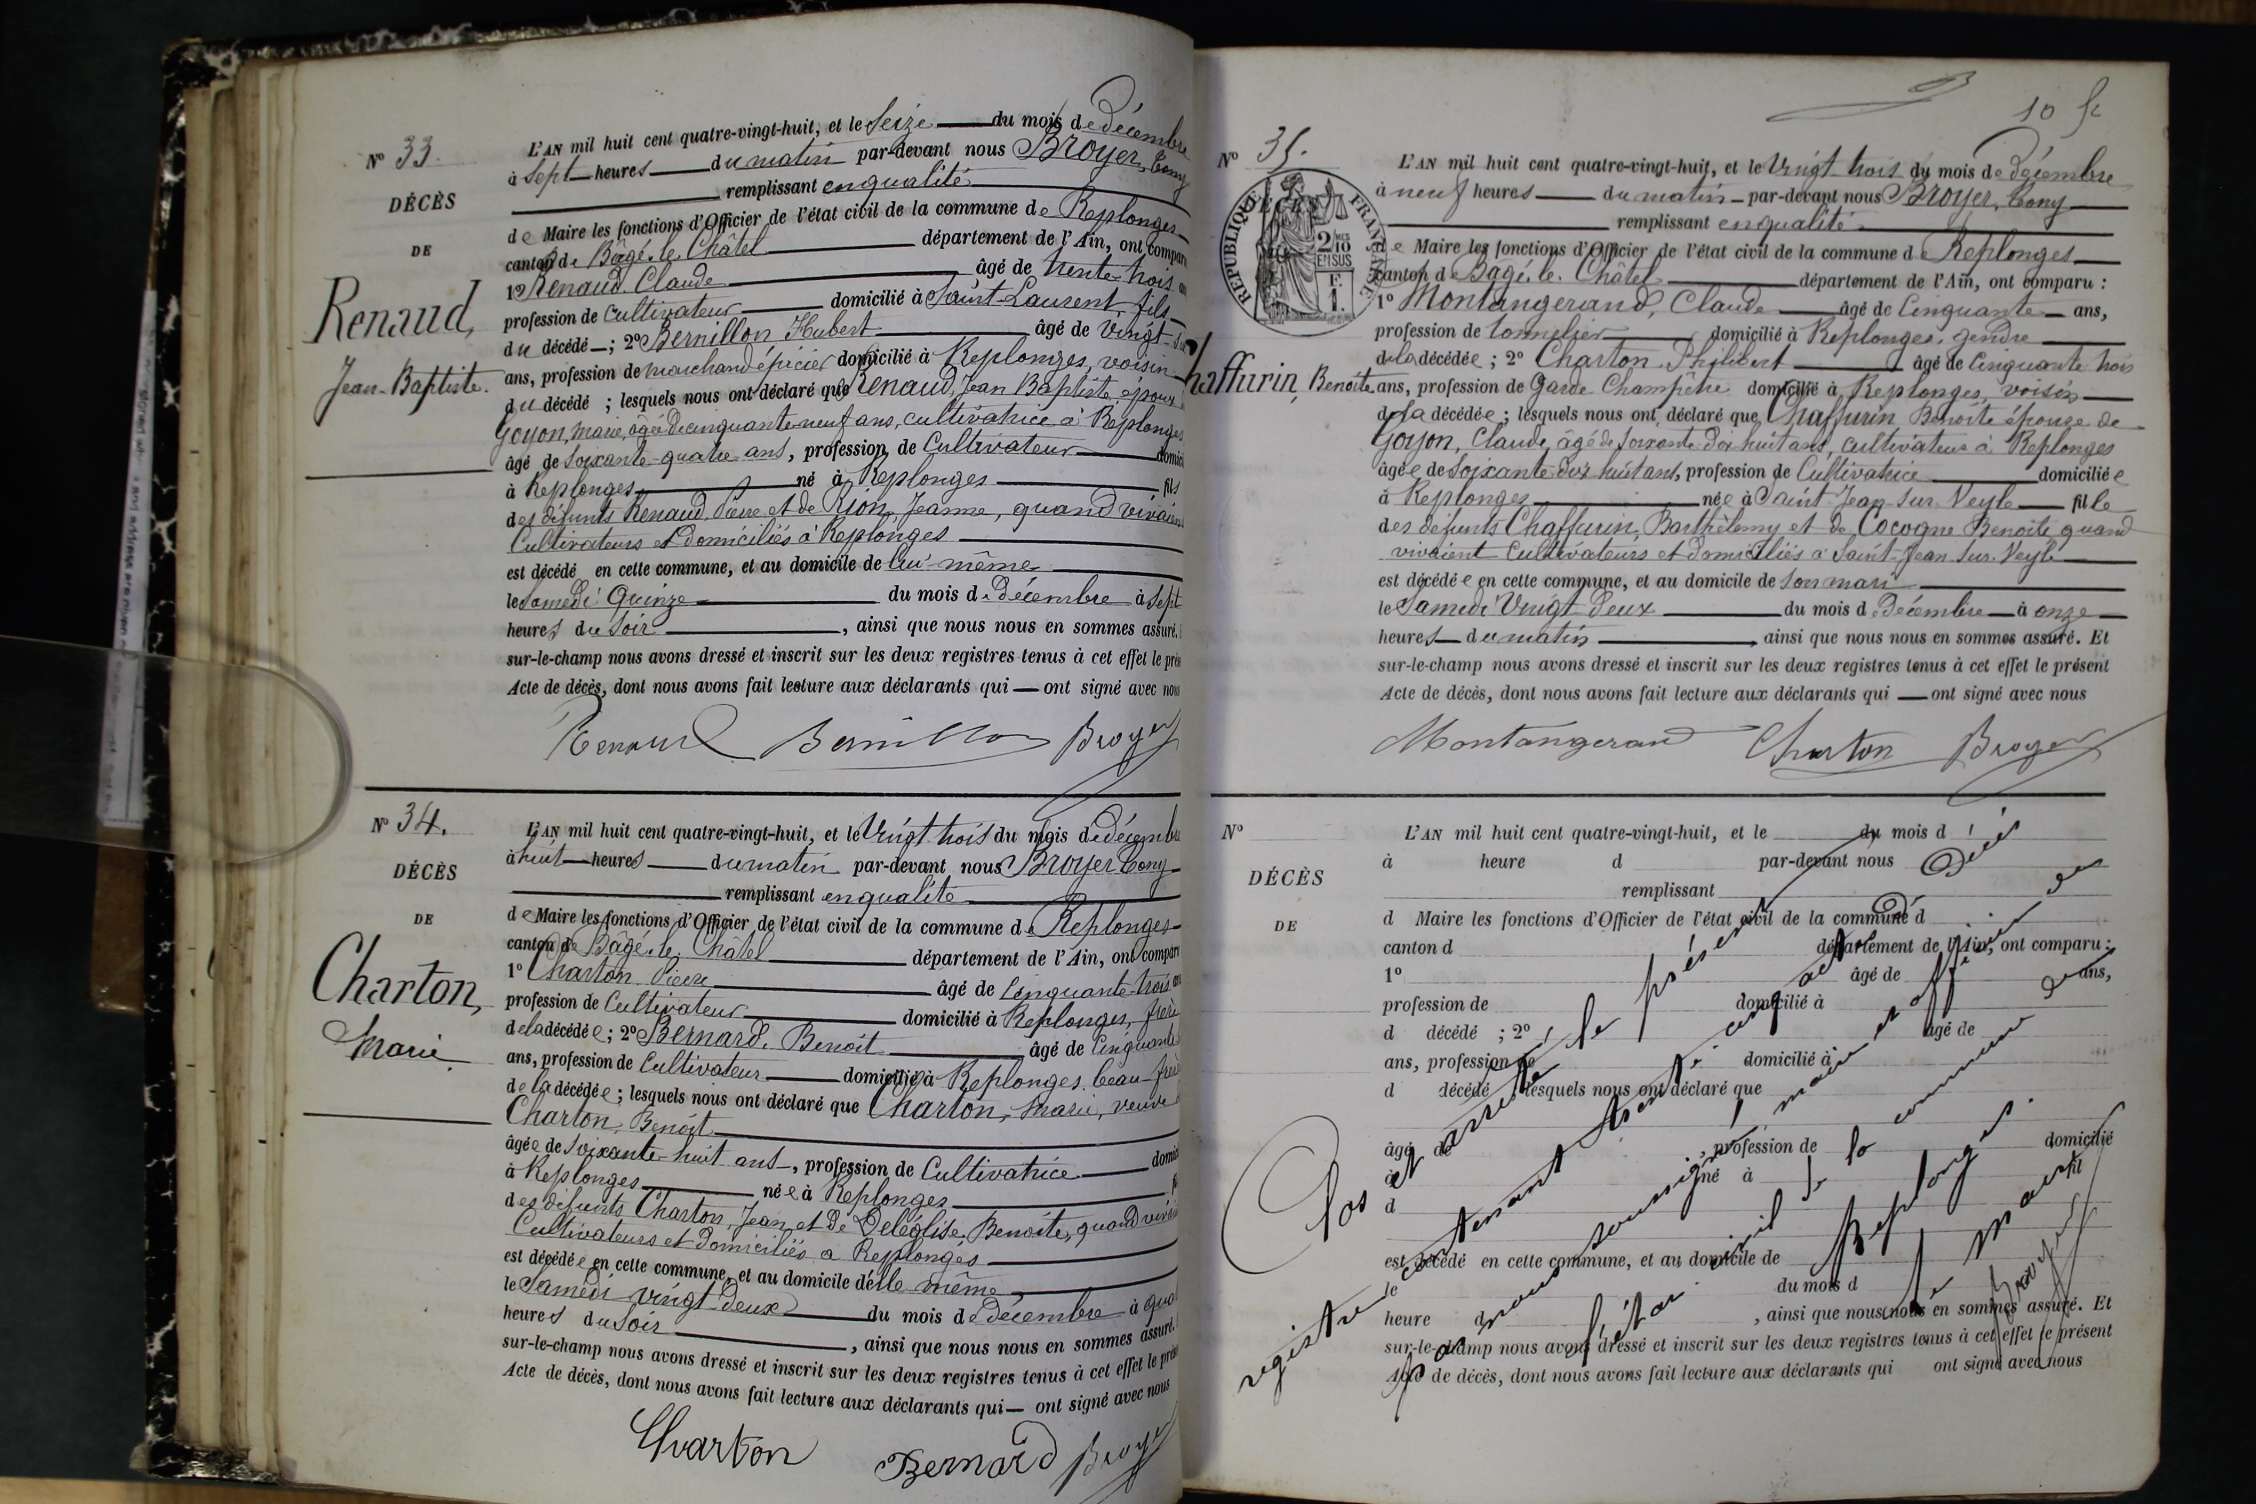 N° 33.
DÉCÈS
DE
Renaud,
Jean-Baptiste.
L'AN mil huit cent quatre-vingt-huit, et le Seize du mois de décembre
à Sept heures du matin par-devant nous Broyer, Tony
remplissant en qualité
de Maire les fonctions d'Officier de l'état civil de la commune de Replonges
canton de Bâgé-le-Châtel département de l'Ain, ont compar
1° Renaud, Claude âgé de trente-trois
profession de Cultivateur domicilié à Saint-Laurent, fils
du décédé ; 2° Bernillon Hubert âgé de Vingt-
ans, profession de marchand épicier domicilié à Replonges, voisin
du décédé ; lesquels nous ont déclaré que Renaud, Jean Baptiste, époux
Goyon, Marie, âgée de cinquante-neuf ans, cultivatrice à Replonges
âgé de Soixante-quatre ans, profession de Cultivateur domici
à Replonges né à Replonges fils
des défunts Renaud, Pierre et de Rion, Jeanne, quand vivaient
Cultivateurs et domiciliés à Replonges
est décédé en cette commune, et au domicile de lui-même
le Samedi Quinze du mois de décembre à Sept
heures du Soir, ainsi que nous nous en sommes assuré.
sur-le-champ nous avons dressé et inscrit sur les deux registres tenus à cet effet le prés
Acte de décès, dont nous avons fait lecture aux déclarants qui ont signé avec nous
Renaud Bernillon Broyer
N° 34.
DÉCÈS
DE
Charton,
Marie.
L'AN mil huit cent quatre-vingt-huit, et le Vingt trois du mois de décembre
à huit heures du matin par-devant nous Broyer Tony
remplissant en qualité
de Maire les fonctions d'Officier de l'état civil de la commune de Replonges
canton de Bâgé-le-Châtel département de l'Ain, ont compar
1° Charton Pierre âgé de Cinquante-trois
profession de Cultivateur domicilié à Replonges, frère
de la décédée ; 2° Bernard, Benoît âgé de Cinquante
ans, profession de Cultivateur domicilié à Replonges, beau-frère
de la décédée ; lesquels nous ont déclaré que Charton, Marie, veuve
Charton, Benoît
âgée de Soixante-huit ans, profession de Cultivatrice domici
à Replonges née à Replonges
des défunts Charton, Jean, et de Deléglise, Benoîte, quand vivaient
Cultivateurs et domiciliés à Replonges
est décédée en cette commune, et au domicile d'elle même
le Samedi vingt deux du mois de décembre à qua
heures du Soir, ainsi que nous nous en sommes assuré.
sur-le-champ nous avons dressé et inscrit sur les deux registres tenus à cet effet le prés
Acte de décès, dont nous avons fait lecture aux déclarants qui ont signé avec nous
Charton Bernard Broyer
10
N° 35.
RÉPUBLIQUE FRANÇAISE
2/10 EN SUS
F. 1.
Chaffurin, Benoîte
L'AN mil huit cent quatre-vingt-huit, et le Vingt trois du mois de décembre
à neuf heures du matin par-devant nous Broyer, Tony
remplissant en qualité
de Maire les fonctions d'Officier de l'état civil de la commune de Replonges
canton de Bâgé-le-Châtel département de l'Ain, ont comparu :
1° Montangerand, Claude âgé de Cinquante ans,
profession de tonnelier domicilié à Replonges, gendre
de la décédée ; 2° Charton Philibert âgé de Cinquante trois
ans, profession de Garde Champêtre domicilié à Replonges, voisin
de la décédée ; lesquels nous ont déclaré que Chaffurin Benoîte épouse de
Goyon, Claude, âgé de soixante-dix huit ans, cultivateur à Replonges
âgée de Soixante-dix huit ans, profession de Cultivatrice domiciliée
à Replonges née à Saint-Jean-sur-Veyle fille
des défunts Chaffurin, Barthélemy et de Cocogne Benoîte quand
vivaient Cultivateurs et domiciliés à Saint-Jean-sur-Veyle
est décédée en cette commune, et au domicile de son mari
le Samedi Vingt deux du mois de décembre à onze
heures du matin, ainsi que nous nous en sommes assuré. Et
sur-le-champ nous avons dressé et inscrit sur les deux registres tenus à cet effet le présent
Acte de décès, dont nous avons fait lecture aux déclarants qui ont signé avec nous
Montangerand Charton Broyer
N°
DÉCÈS
DE
L'AN mil huit cent quatre-vingt-huit, et le du mois d
à heure d par-devant nous
remplissant
d Maire les fonctions d'Officier de l'état civil de la commune d
canton d département de l'Ain, ont comparu :
1° âgé de ans,
profession de domicilié à
d décédé ; 2° âgé de
ans, profession de domicilié à
d décédé ; lesquels nous ont déclaré que
âgé de , profession de domicilié
à né à fil
d
est décédé en cette commune, et au domicile de
le du mois d
heure d , ainsi que nous nous en sommes assuré. Et
sur-le-champ nous avons dressé et inscrit sur les deux registres tenus à cet effet le présent
Acte de décès, dont nous avons fait lecture aux déclarants qui ont signé avec nous
Clos et arrêté le présent
registre contenant trente-cinq actes de Décès
par nous soussigné, maire et officier de
l'état civil de la commune de
Replonges.
Le Maire
Broyer